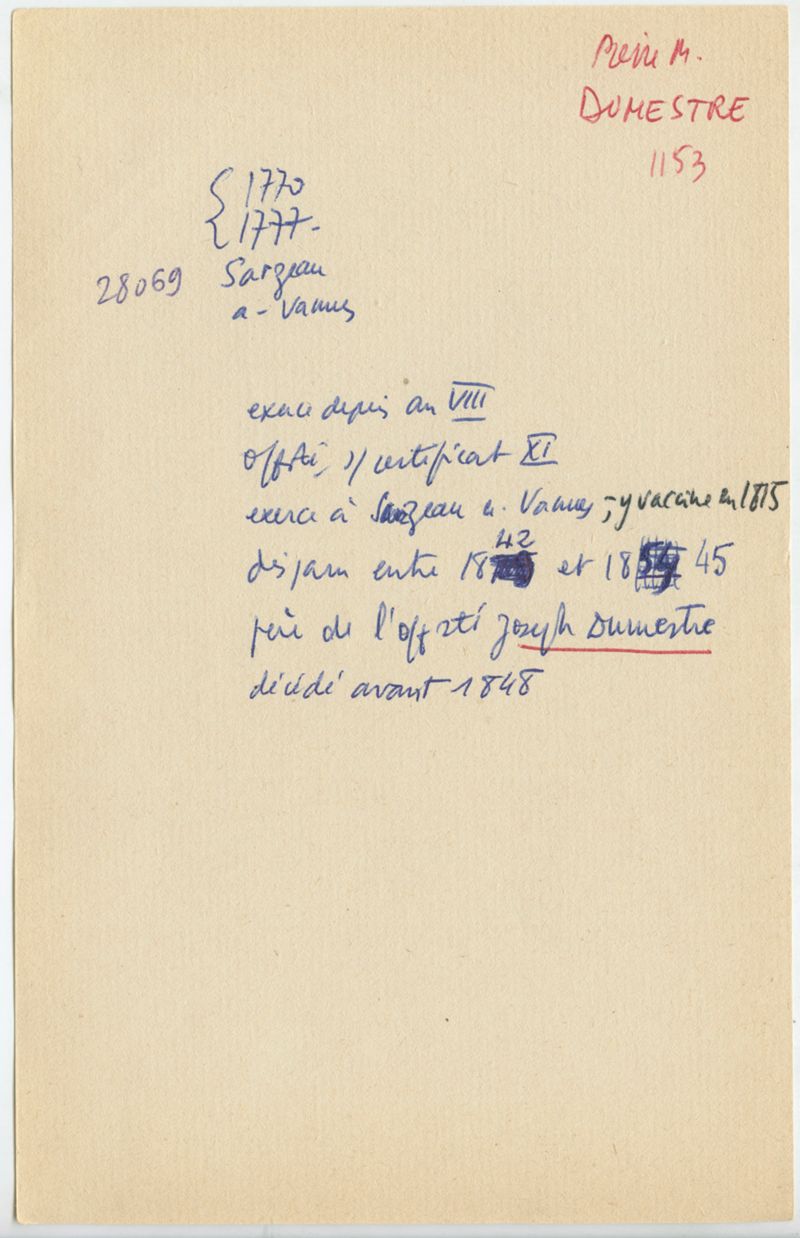 Pierre M.
DUMESTRE
1153
1770
1777-
28069
Sarzeau
a - Vannes
exerce depuis an VIII
off sté, s/ certificat XI
exerce à Sarzeau a. Vannes ; - y vaccine en 1815
disparu entre 1842 et 18 45
père de l'off sté Joseph Dumestre
décédé avant 1848